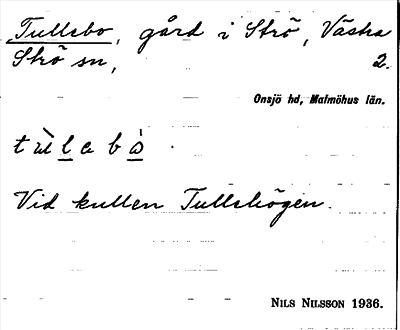 Tullsbo, gård i Strö, Västra
Strö sn, 2.
Onsjö hd, Malmöhus län.
Vid kullen Tullshögen.
NILS NILSSON 1936.